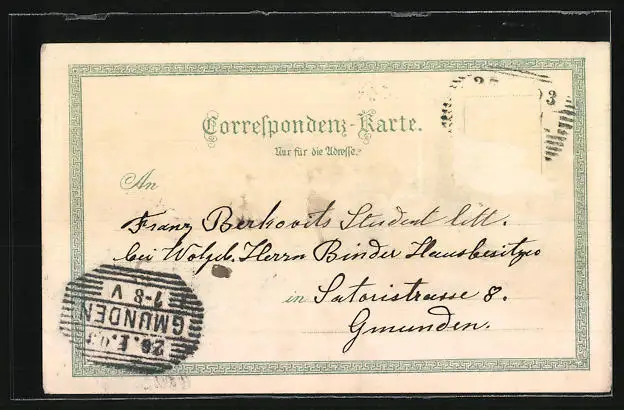 Correspondenz-Karte.
Nur für die Adresse.
An
Franz Berkovits Student litt.
bei Wolgeb. Herrn Binder Hausbesitzer
in Satoristrasse 8.
Gmunden.
GMUNDEN
7-8 V